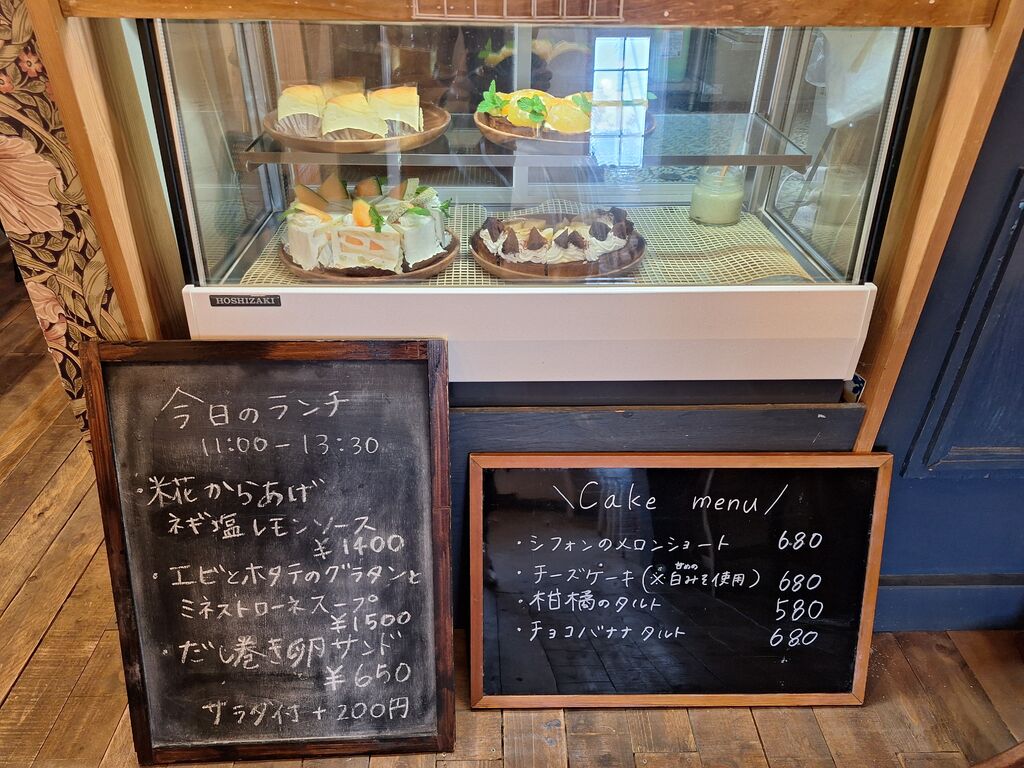 HOSHIZAKI
今日のランチ
11:00-13:30
・米花からあげ
ネギ塩レモンソース
¥1400
・エビとホタテのグラタンと
ミネストローネスープ
¥1500
・だし巻き卵サンド
¥650
サラダ付+200円
\Cake menu/
・シフォンのメロンショート 680
・チーズケーキ(※甘めの白みそ使用) 680
・柑橘のタルト 580
・チョコバナナタルト 680